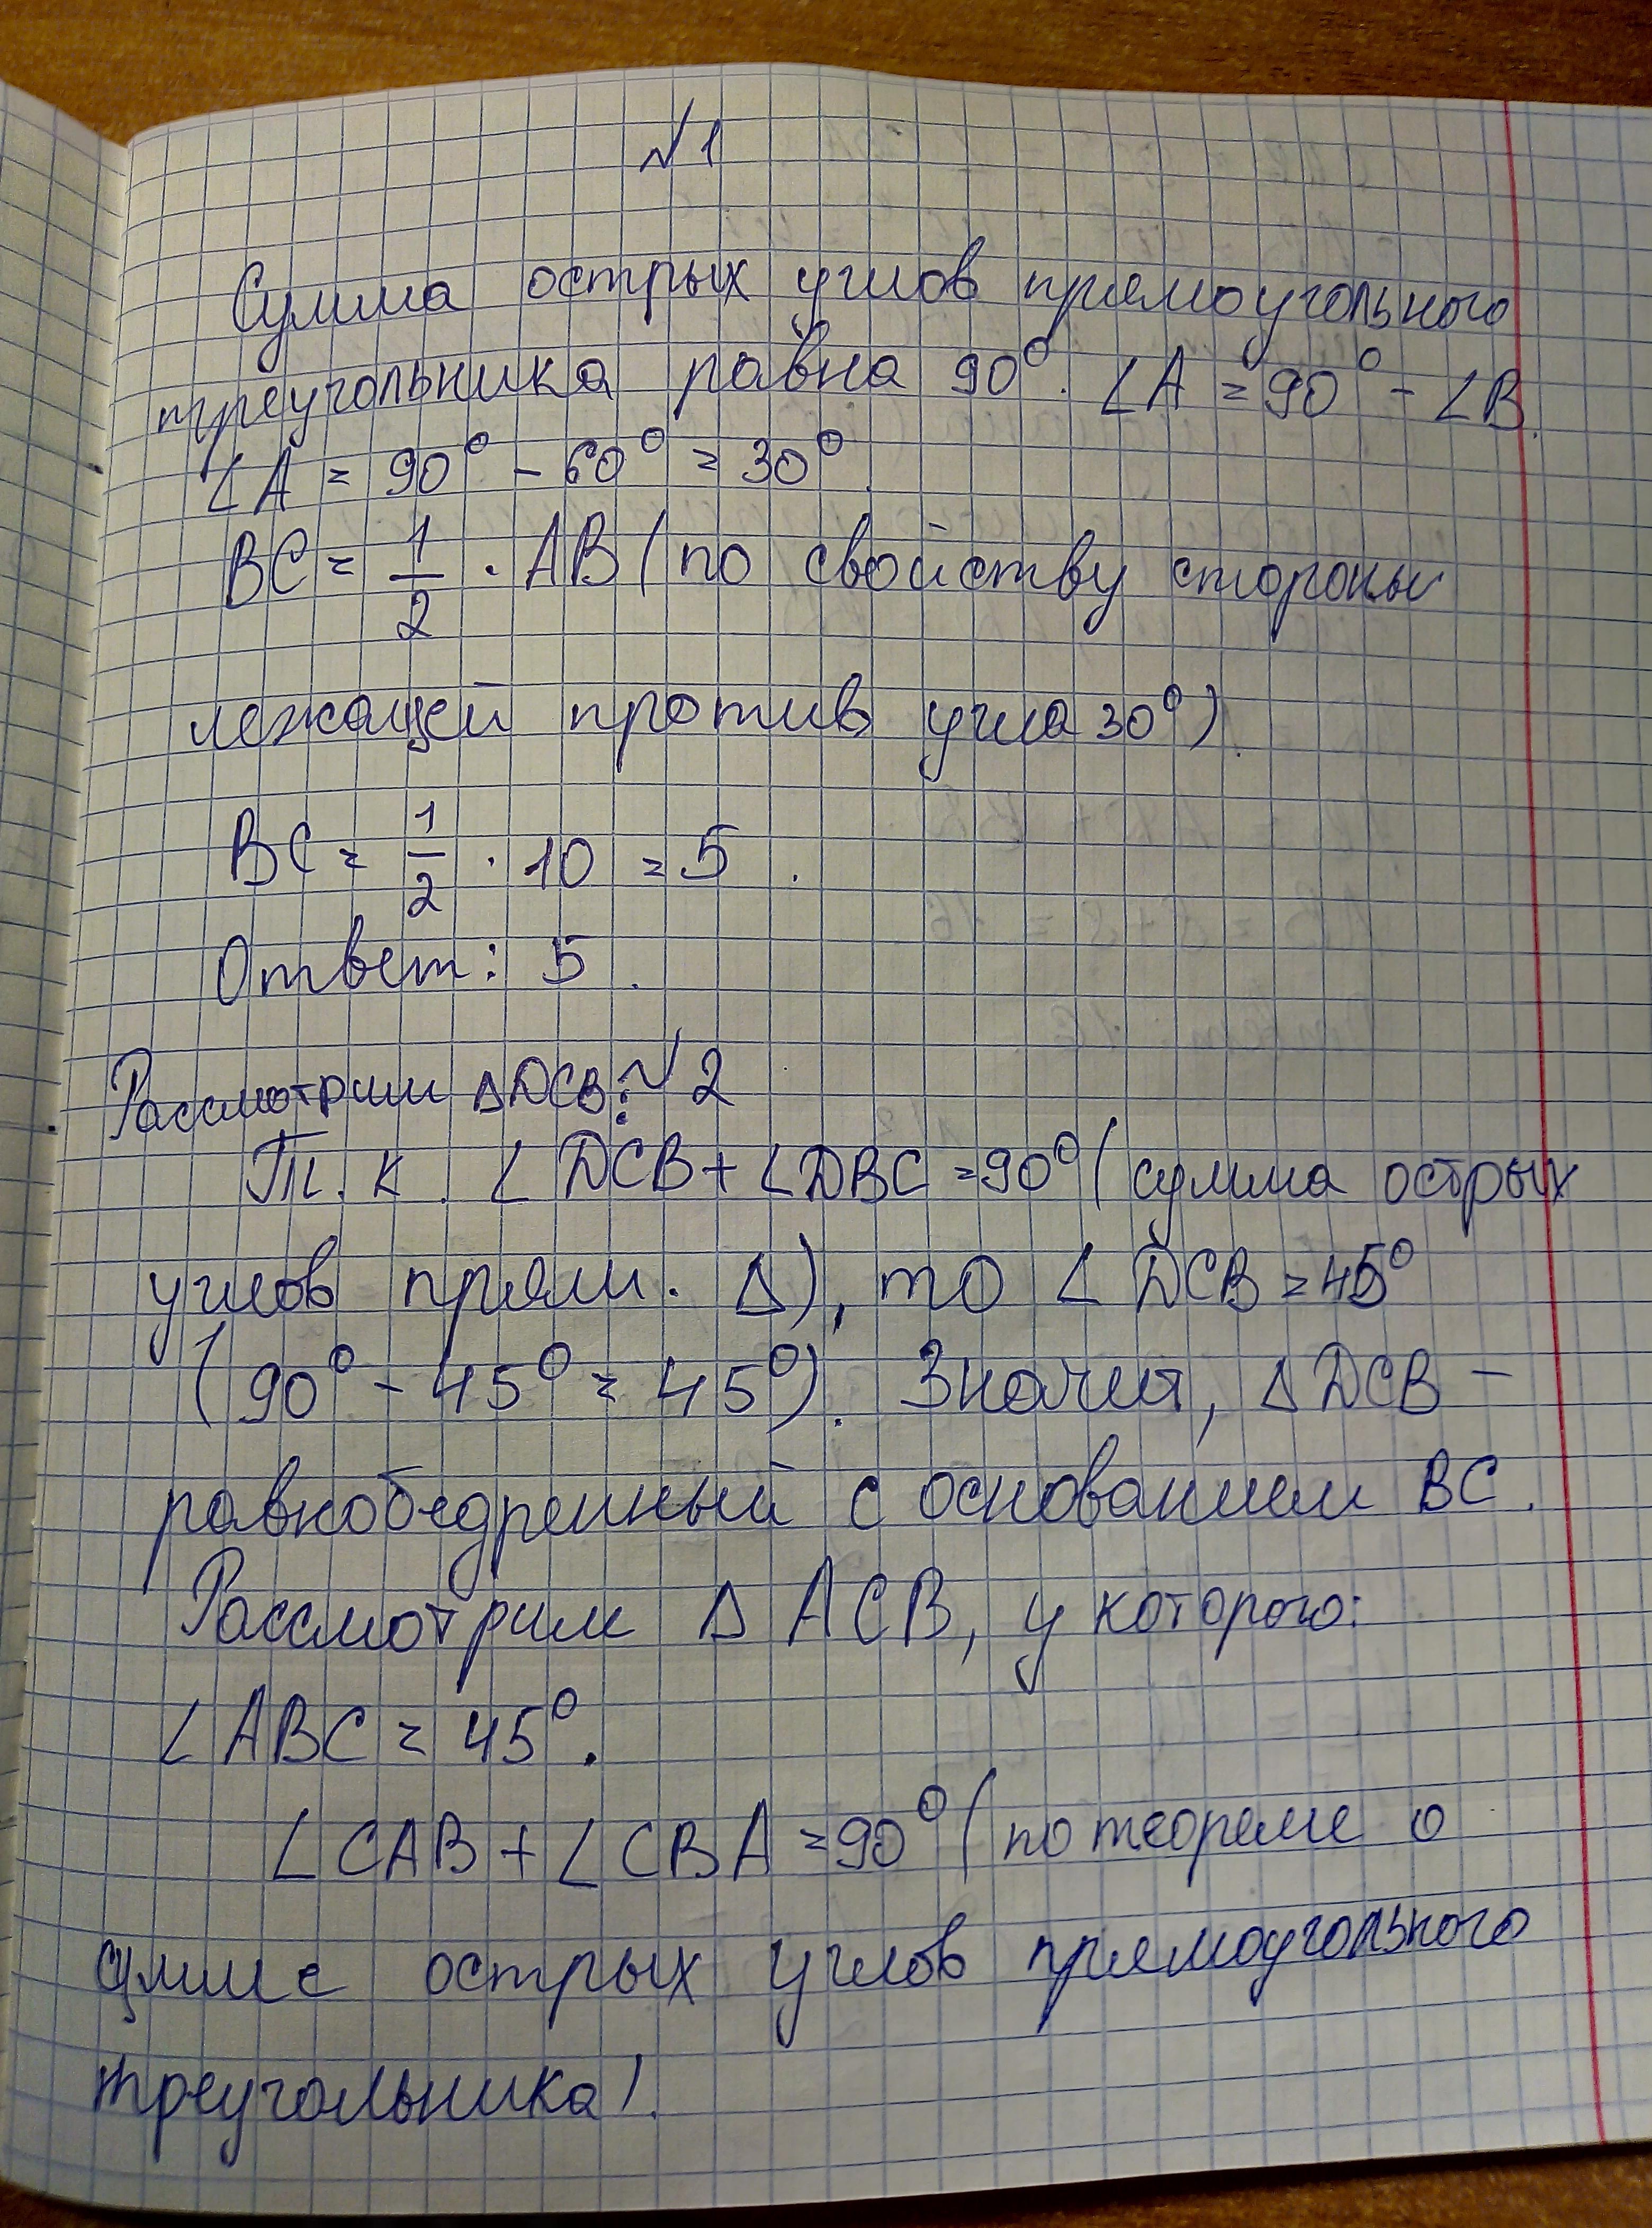 №1
Сумма острых углов прямоугольного
треугольника равна 90°. ∠A = 90° - ∠B.
∠A = 90° - 60° = 30°.
BC = 1/2 · AB (по свойству стороны
лежащей против угла 30°).
BC = 1/2 · 10 = 5.
Ответ: 5.
Рассмотрим ΔDCB: №2
Т. к. ∠DCB + ∠DBC = 90° (сумма острых
углов прям. Δ), то ∠DCB = 45°
(90° - 45° = 45°). Значит, ΔDCB -
равнобедренный с основанием BC.
Рассмотрим ΔACB, у которого:
∠ABC = 45°.
∠CAB + ∠CBA = 90° (по теореме о
сумме острых углов прямоугольного
треугольника).